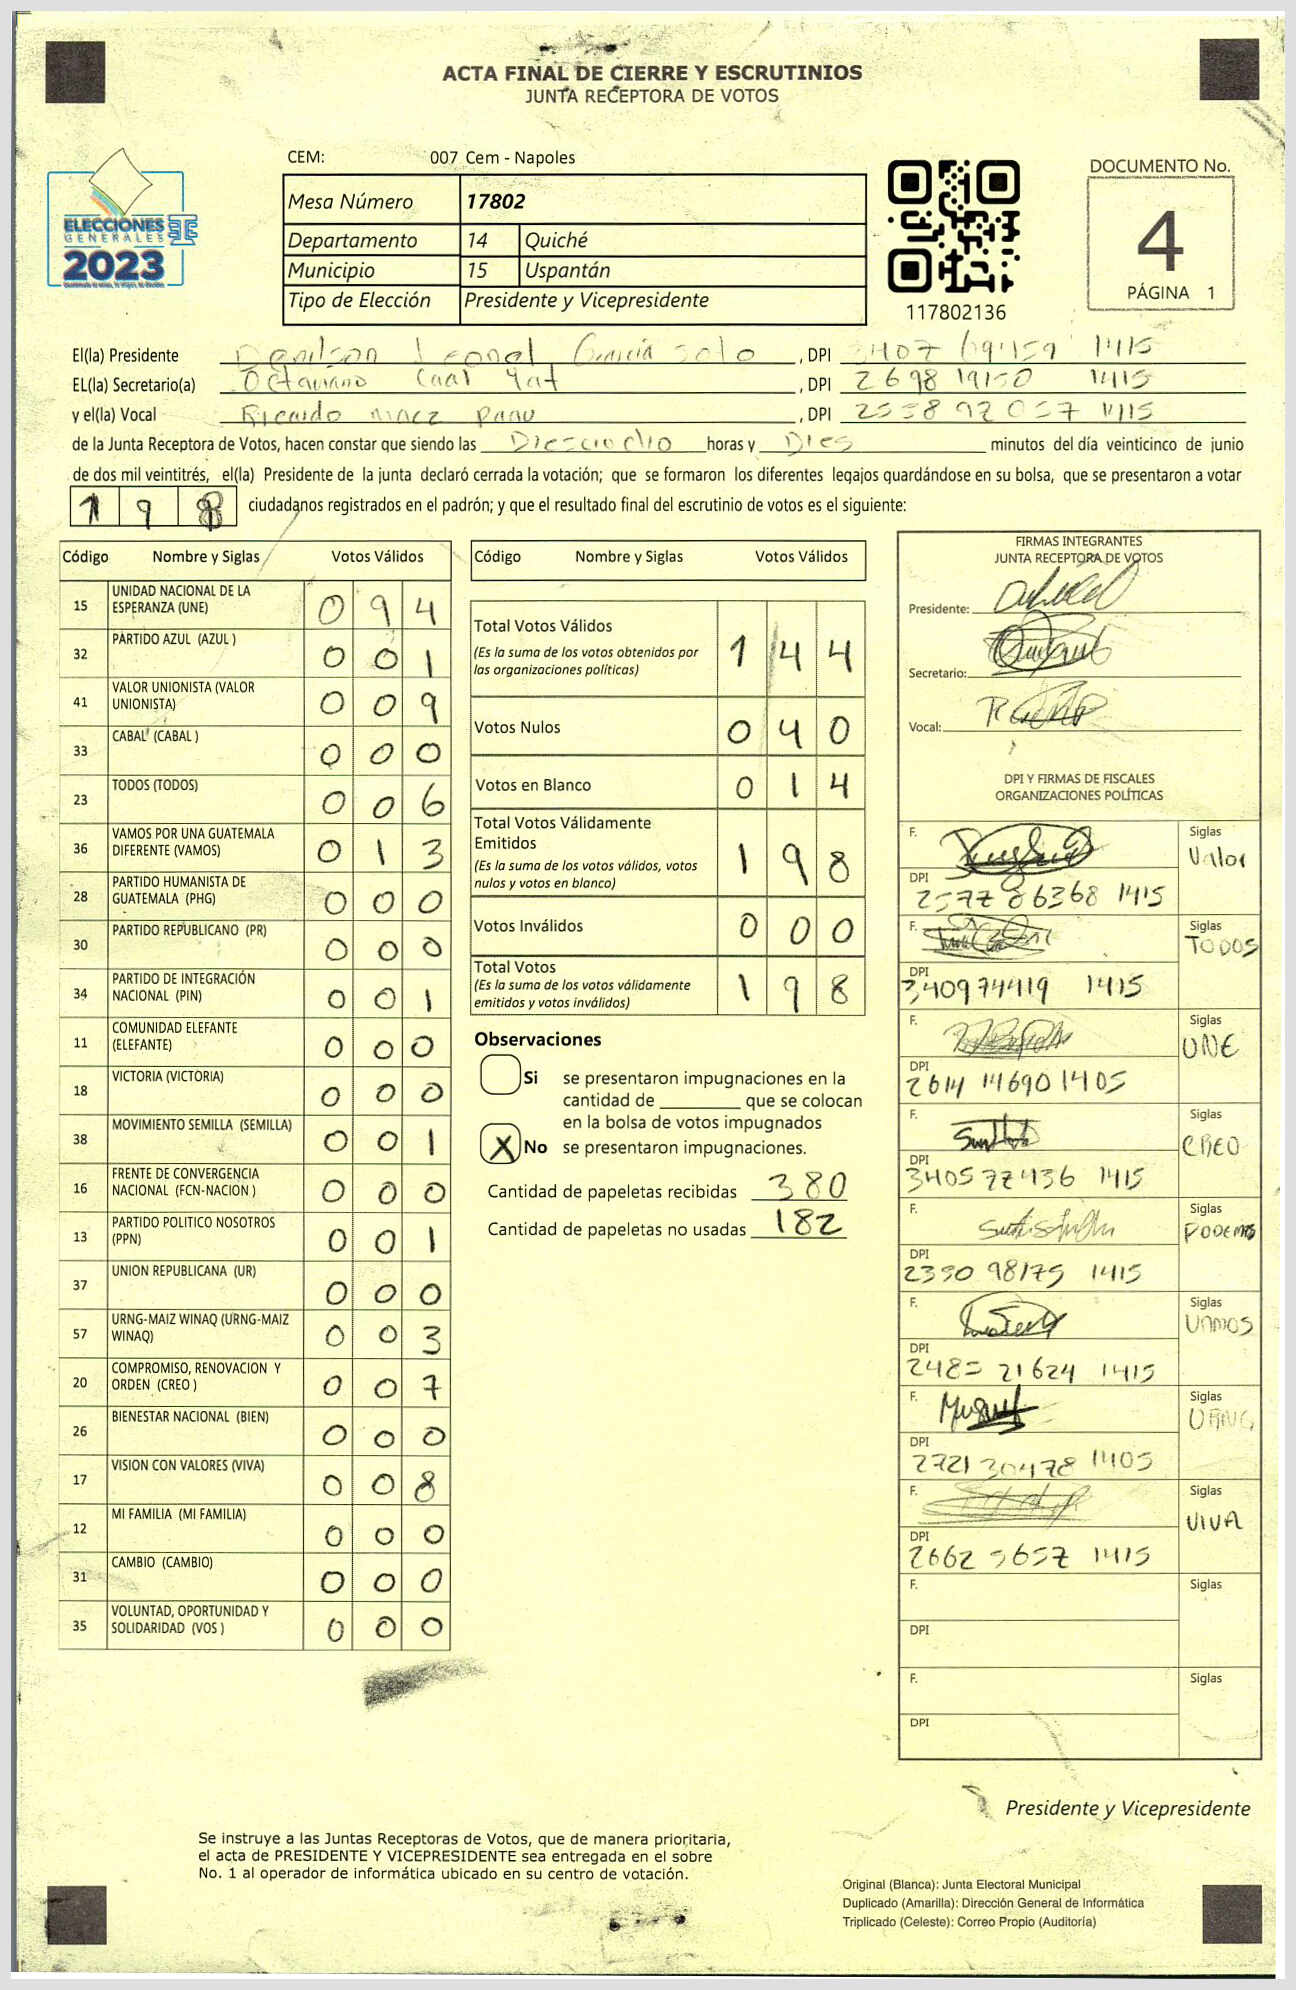 ACTA FINAL DE CIERRE Y ESCRUTINIOS
JUNTA RECEPTORA DE VOTOS
CEM: 007 Cem - Napoles
ELECCIONES
GENERALES
2023
Mesa Número 17802
Departamento 14 Quiché
Municipio 15 Uspantán
Tipo de Elección Presidente y Vicepresidente
117802136
DOCUMENTO No.
4
PÁGINA 1
El(la) Presidente Denilson Leonel García Solo, DPI 3407 69459 1415
EL(la) Secretario(a) Octaviano Caal Yat, DPI 2698 19150 1415
y el(la) Vocal Ricardo, DPI 2558 92057 1415
de la Junta Receptora de Votos, hacen constar que siendo las Diesciocho horas y Dies minutos del día veinticinco de junio
de dos mil veintitrés, el(la) Presidente de la junta declaró cerrada la votación; que se formaron los diferentes legajos guardándose en su bolsa, que se presentaron a votar
198 ciudadanos registrados en el padrón; y que el resultado final del escrutinio de votos es el siguiente:
Código Nombre y Siglas Votos Válidos
15 UNIDAD NACIONAL DE LA ESPERANZA (UNE) 0 9 4
32 PARTIDO AZUL (AZUL ) 0 0 1
41 VALOR UNIONISTA (VALOR UNIONISTA) 0 0 9
33 CABAL (CABAL ) 0 0 0
23 TODOS (TODOS) 0 0 6
36 VAMOS POR UNA GUATEMALA DIFERENTE (VAMOS) 0 1 3
28 PARTIDO HUMANISTA DE GUATEMALA (PHG) 0 0 0
30 PARTIDO REPUBLICANO (PR) 0 0 0
34 PARTIDO DE INTEGRACIÓN NACIONAL (PIN) 0 0 1
11 COMUNIDAD ELEFANTE (ELEFANTE) 0 0 0
18 VICTORIA (VICTORIA) 0 0 0
38 MOVIMIENTO SEMILLA (SEMILLA) 0 0 1
16 FRENTE DE CONVERGENCIA NACIONAL (FCN-NACION ) 0 0 0
13 PARTIDO POLITICO NOSOTROS (PPN) 0 0 1
37 UNION REPUBLICANA (UR) 0 0 0
57 URNG-MAIZ WINAQ (URNG-MAIZ WINAQ) 0 0 3
20 COMPROMISO, RENOVACION Y ORDEN (CREO ) 0 0 7
26 BIENESTAR NACIONAL (BIEN) 0 0 0
17 VISION CON VALORES (VIVA) 0 0 8
12 MI FAMILIA (MI FAMILIA) 0 0 0
31 CAMBIO (CAMBIO) 0 0 0
35 VOLUNTAD, OPORTUNIDAD Y SOLIDARIDAD (VOS ) 0 0 0
Código Nombre y Siglas Votos Válidos
Total Votos Válidos 1 4 4
(Es la suma de los votos obtenidos por
las organizaciones políticas)
Votos Nulos 0 4 0
Votos en Blanco 0 1 4
Total Votos Válidamente
Emitidos 1 9 8
(Es la suma de los votos válidos, votos
nulos y votos en blanco)
Votos Inválidos 0 0 0
Total Votos 1 9 8
(Es la suma de los votos válidamente
emitidos y votos inválidos)
Observaciones
Si se presentaron impugnaciones en la
cantidad de ________ que se colocan
en la bolsa de votos impugnados
X No se presentaron impugnaciones.
Cantidad de papeletas recibidas 380
Cantidad de papeletas no usadas 182
FIRMAS INTEGRANTES
JUNTA RECEPTORA DE VOTOS
Presidente:
Secretario:
Vocal:
DPI Y FIRMAS DE FISCALES
ORGANIZACIONES POLÍTICAS
F. Siglas Valor
DPI 2577 86368 1415
F. Siglas TODOS
DPI 3409 74419 1415
F. Siglas UNE
DPI 2614 14690 1405
F. Siglas CREO
DPI 3405 77436 1415
F. Siglas PODEMOS
DPI 2330 98175 1415
F. Siglas VAMOS
DPI 2485 21624 1415
F. Siglas URNG
DPI 2721 30478 1405
F. Siglas VIVA
DPI 2662 5657 1415
F. Siglas
DPI
F. Siglas
DPI
Presidente y Vicepresidente
Se instruye a las Juntas Receptoras de Votos, que de manera prioritaria,
el acta de PRESIDENTE Y VICEPRESIDENTE sea entregada en el sobre
No. 1 al operador de informática ubicado en su centro de votación.
Original (Blanca): Junta Electoral Municipal
Duplicado (Amarilla): Dirección General de Informática
Triplicado (Celeste): Correo Propio (Auditoría)